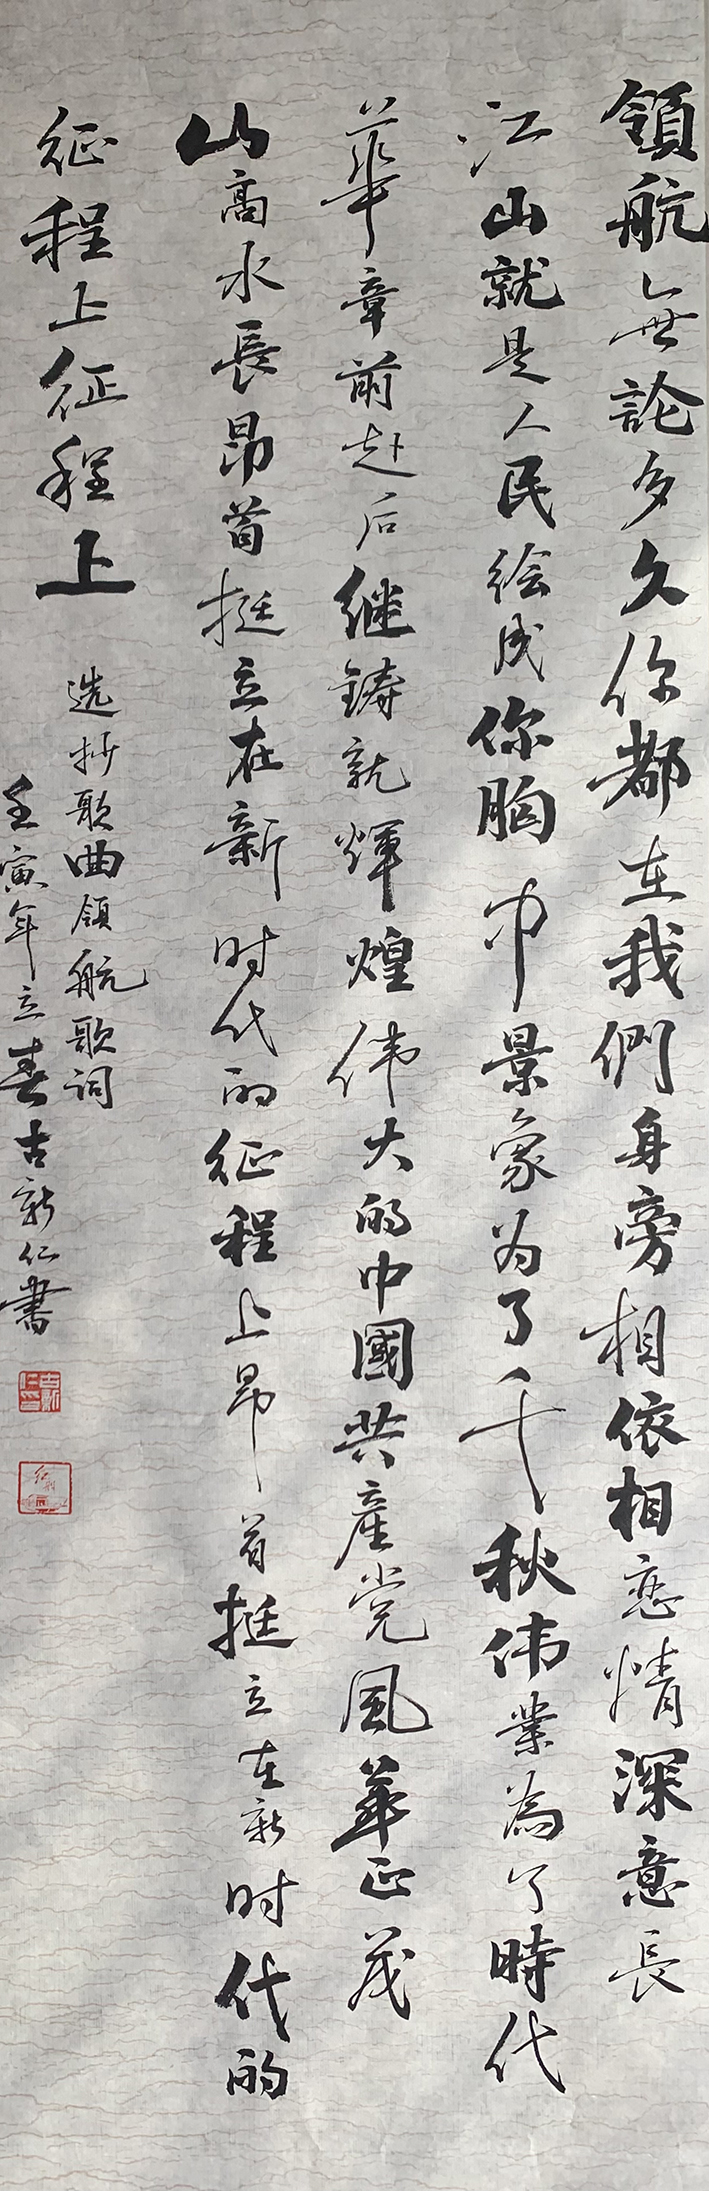 領航無論多久你都在我們身旁相依相恋情深意長
江山就是人民绘成你胸中景象为了千秋伟業為了時代
華章前赴后继鋳就輝煌伟大的中國共産党風華正茂
山高水長昂首挺立在新时代的征程上昂首挺立在新时代的
征程上征程上
选抄歌曲領航歌词
壬寅年立春古新仁書